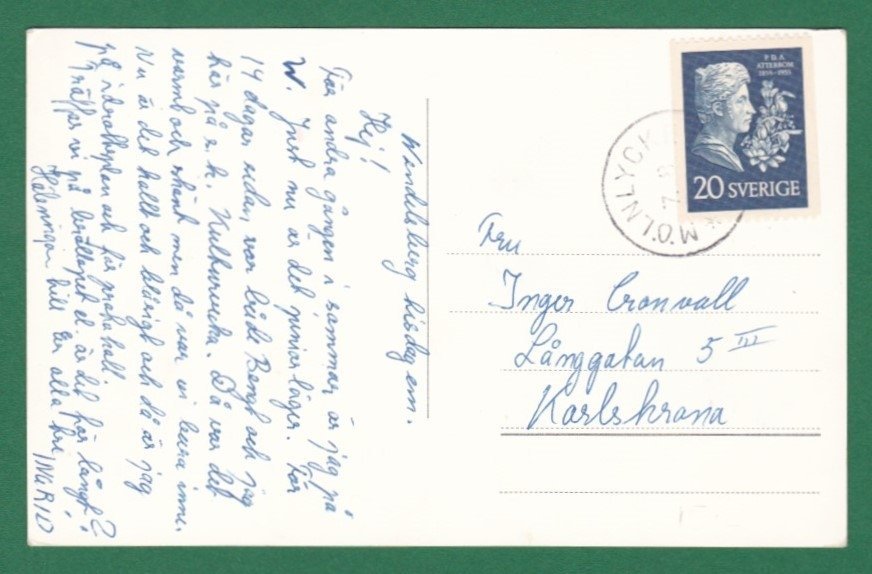 Wendelsberg tisdag em.
Hej!
För andra gången i sommar är jag på
W. Just nu är det juniorläger. För
14 dagar sedan var både Bengt och jag
här på s.k. Kulturvecka. Då var det
varmt och skönt men då var vi bara inne.
Nu är det kallt och blåsigt och då är jag
på idrottsplan och här
träffas vi på är det för långt?
Hälsningar till Er alla tre INGRID
P.D.A.
ATTERBOM
1855-1955
20 SVERIGE
MÖLNLYCKE
Fru
Inger Cronvall
Långgatan 5 III
Karlskrona